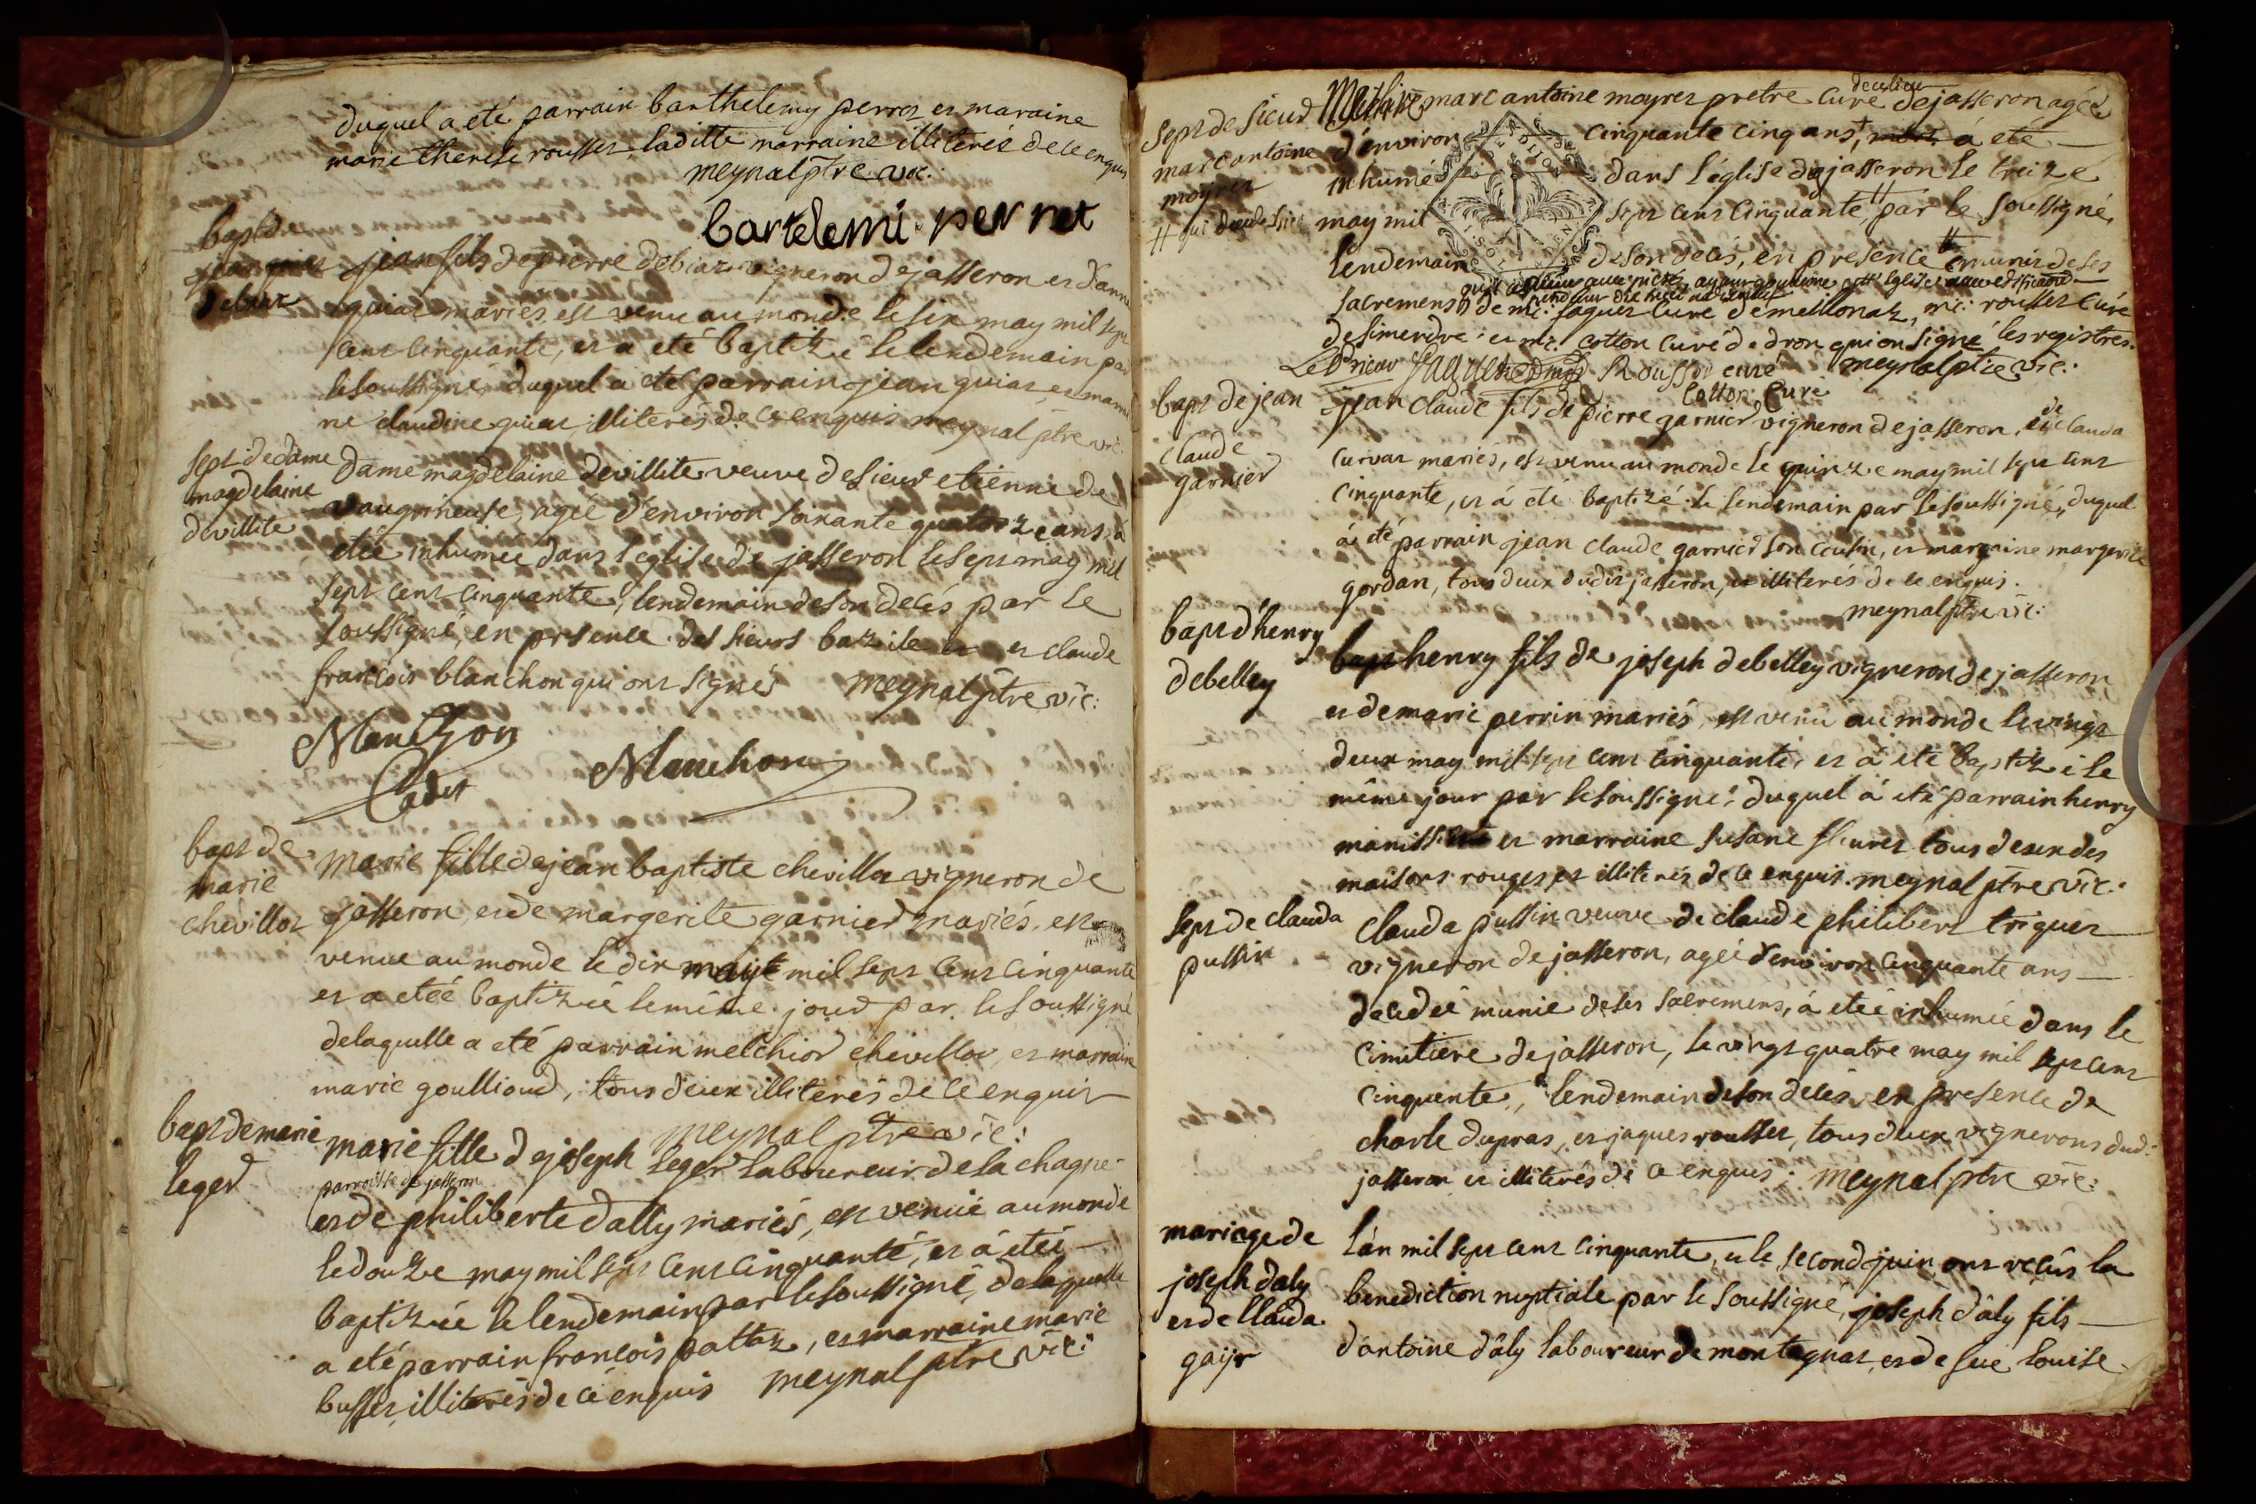 duquel a eté parrain barthelemy perroz et maraine
marie therese rousset, laditte marraine illiterée de ce enquis
meynal ptre vic:
bartelemi perret
bapt de
jean
debiaz
jean fils de pierre debiaz vigneron de jasseron et d'anne
guiaz mariés, est venu au monde le six may mil sept
cent cinquante, et a eté baptizé le lendemain par
le soussigné, duquel a eté parrain jean guiaz, et marrai
ne claudine guiaz illiterés de ce enquis meynal ptre vic:
sept: de dame
magdelaine
devillite
Dame magdelaine devillite veuve de sieur etienne de
vaugrineuse, agée d'environ soixante quatorze ans, a
etée inhumée dans l'eglise de jasseron le sept may mil
sept cent cinquante, lendemain de son decés par le
soussigné, en presence des sieurs bazile et et claude
françois blanchon qui ont signés meynal ptre vic:
Blanchon
Cadet
Blanchon
bapt de
marie
chevilloz
Marie fille de jean baptiste chevilloz vigneron de
jasseron, et de margerite garnier mariés, est
venue au monde le dix may mil sept cent cinquante
et a etéé baptizéé le même jour par le soussigné
de laquelle a eté parrain melchior chevilloz, et marraine
marie goullioud, tous deux illiterés de ce enquis
meynal ptre vic:
bapt de marie
leger
marie fille de joseph leger laboureur de la chagne
parroisse de jasseron
et de philiberte dally mariés, est venüe au monde
le douze may mil sept cent cinquante, et à etéé
baptizéé le lendemain par le soussigné, de laquelle
a eté parrain françois pattaz, et marraine marie
busset, illiterés de ce enquis meynal ptre vic:
Sept de Sieur
marc antoine
moyret
# qui d
Messire marc antoine moyret pretre curé de jasseron agé
d'environ cinquante cinq ans, à eté
inhumé dans l'église de jasseron le treize
may mil sept cent cinquante, # par le soussigné,
lendemain de son decés, en presence munis de ses
sacremens, de mr: jaquet curé de meillonaz, mr: rousset curé
de simendre: et mr: cotton curé de dron qui on signé les registres.
Rousset curé meynal ptre vic:
Cotton, Curé
bapt de jean
claude
garnier
jean claude fils de pierre garnier vigneron de jasseron, et de clauda
curvaz mariés, est venu au monde le quinze may mil sept cent
cinquante, et á eté baptizé le lendemain par le soussigné, duquel
á eté parrain jean claude garnier son cousin, et marraine margerite
gordan, tous deux dudit jasseron, et illiterés de ce enquis.
meynal ptre vic:
bapt d'henry
debelley
bapt henry fils de joseph debelley vigneron de jasseron
et de marie perrin mariés, est venu au monde le vingt
deux may mil sept cent cinquante, et á eté baptizé le
même jour par le soussigné, duquel á eté parrain henry
et marraine susane fleuret tous deux des
maisons rouges, et illiterés de ce enquis. meynal ptre vic:
sept de clauda
pussin
clauda pussin veuve de claude philibert triquet
vigneron de jasseron, agée d'environ cinquante ans
decedée munie de ses sacremens, á etéé inhumée dans le
cimitiere de jasseron, le vingt quatre may mil sept cent
cinquente, lendemain de son decés, en presence de
charle dupras, et jaques rousset, tous deux vignerons dud:
jasseron et illiterés de ce enquis. meynal ptre vic:
mariage de
joseph dâly
et de clauda
gayr
l'an mil sept cent cinquante, et le second juin ont recûs la
benediction nuptiale par le soussigné, joseph dâly fils
d'antoine dâly laboureur de montagnat, et de feüe louise